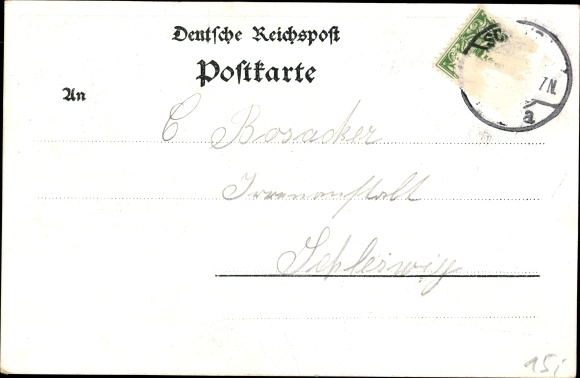 Deutsche Reichspost
Postkarte
An
C Bosacker
Irrenanstalt
Schleswig
SC
7N.
a
15